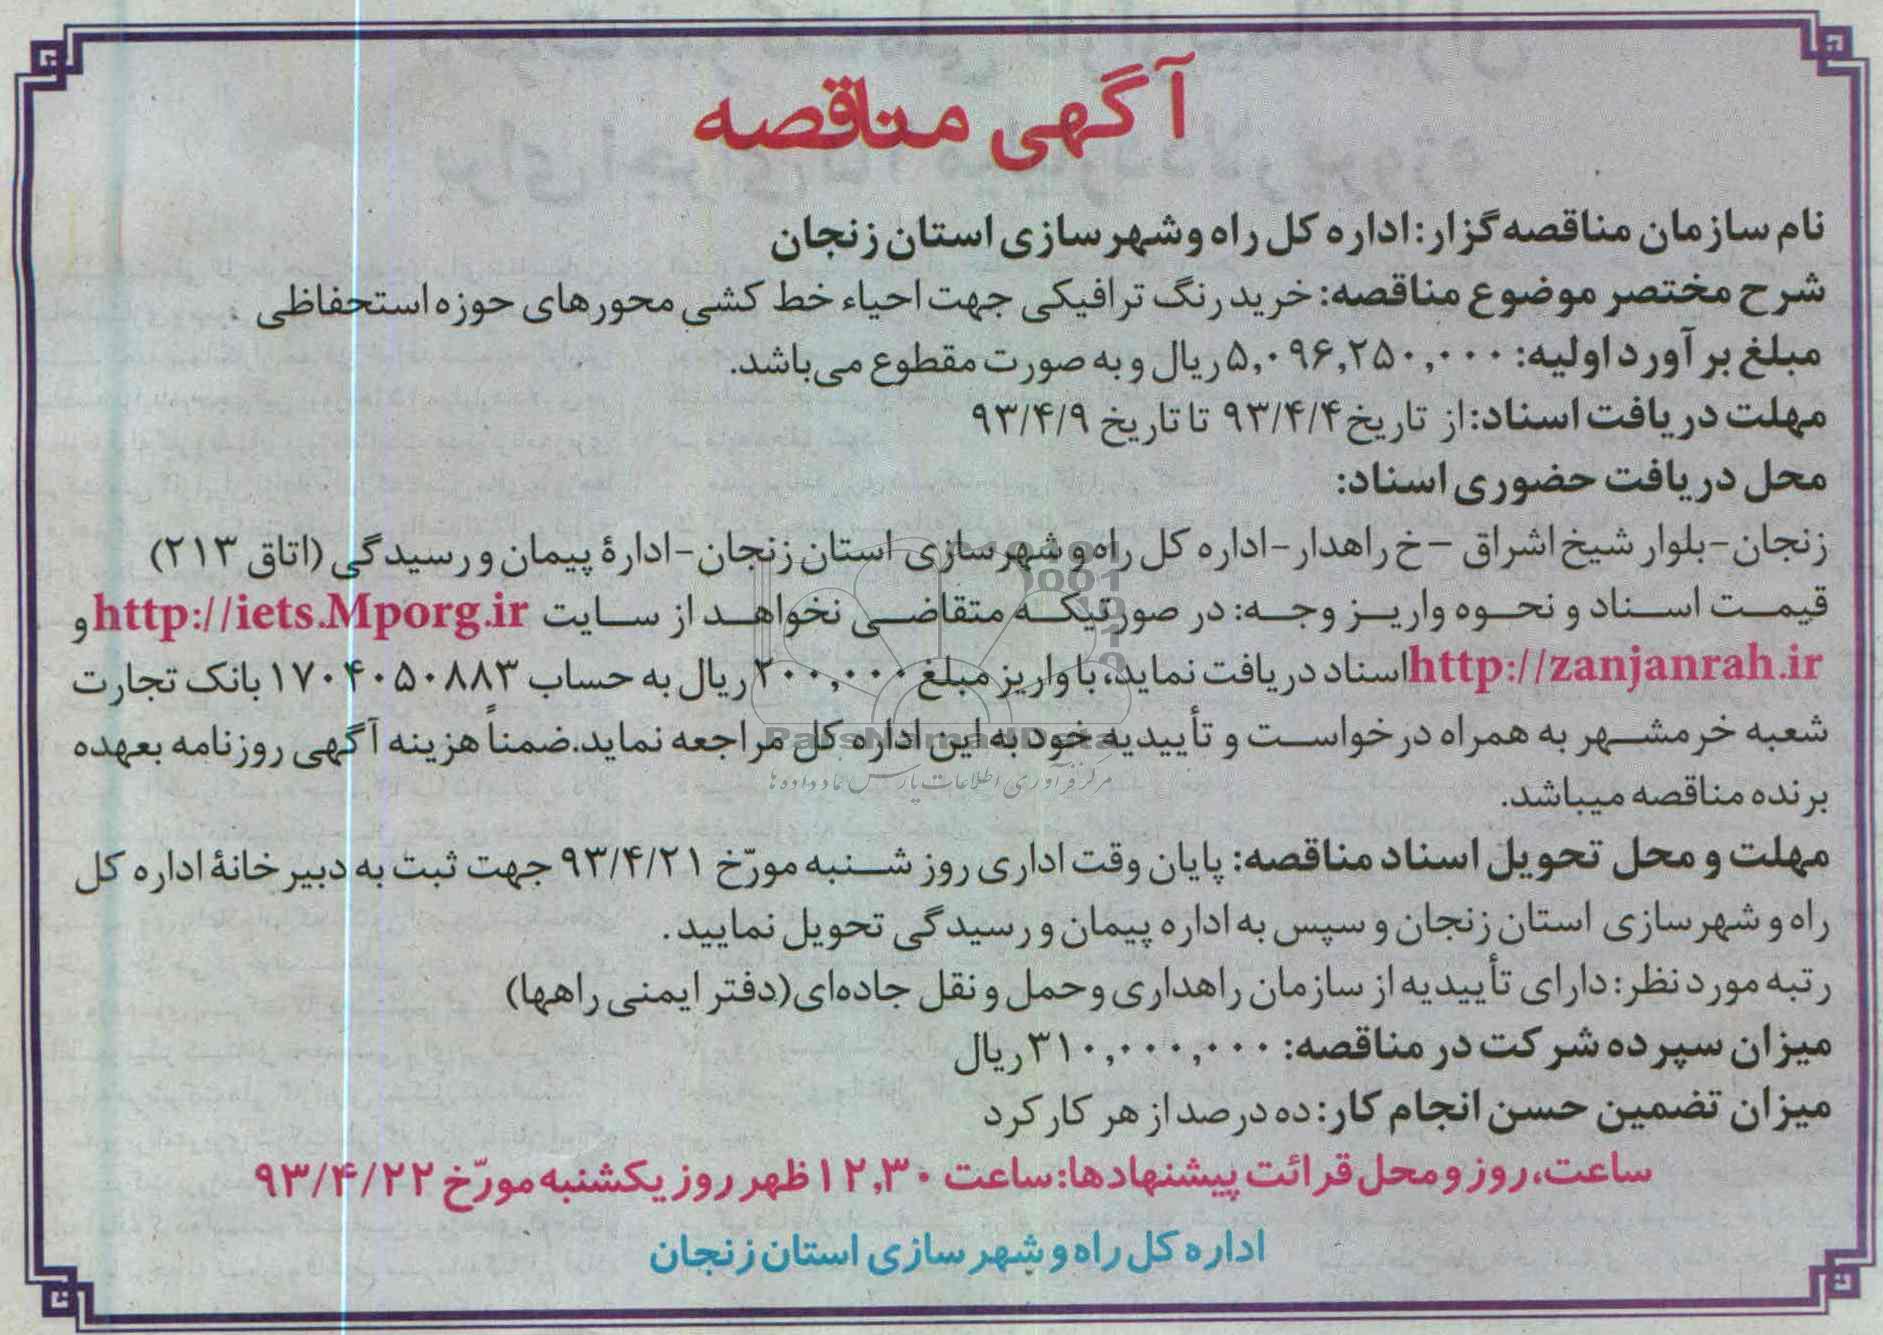 آگهی مناقصه
نام سازمان مناقصه گزار: اداره کل راه وشهرسازی استان زنجان
شرح مختصر موضوع مناقصه: خرید رنگ ترافیکی جهت احیاء خط کشی محورهای حوزه استحفاظی
مبلغ برآورد اولیه: ۵,۰۹۶,۲۵۰,۰۰۰ ریال و به صورت مقطوع می‌باشد.
مهلت دریافت اسناد: از تاریخ ۹۳/۴/۴ تا تاریخ ۹۳/۴/۹
محل دریافت حضوری اسناد:
زنجان-بلوار شیخ اشراق -خ راهدار-اداره کل راه و شهرسازی استان زنجان-ادارۀ پیمان و رسیدگی (اتاق ۲۱۳)
قیمت اسناد و نحوه واریز وجه: در صورتیکه متقاضی نخواهد از سایت http://iets.Mporg.ir و
http://zanjanrah.ir اسناد دریافت نماید، با واریز مبلغ ۲۰۰,۰۰۰ ریال به حساب ۱۷۰۴۰۵۰۸۸۳ بانک تجارت
شعبه خرمشهر به همراه درخواست و تأییدیه خود به این اداره کل مراجعه نماید. ضمناً هزینه آگهی روزنامه بعهده
برنده مناقصه میباشد.
مهلت و محل تحویل اسناد مناقصه: پایان وقت اداری روز شنبه مورّخ ۹۳/۴/۲۱ جهت ثبت به دبیرخانۀ اداره کل
راه و شهرسازی استان زنجان و سپس به اداره پیمان و رسیدگی تحویل نمایید.
رتبه مورد نظر: دارای تأییدیه از سازمان راهداری و حمل و نقل جاده‌ای (دفتر ایمنی راهها)
میزان سپرده شرکت در مناقصه: ۳۱۰,۰۰۰,۰۰۰ ریال
میزان تضمین حسن انجام کار: ده درصد از هر کارکرد
ساعت، روز و محل قرائت پیشنهادها: ساعت ۱۲,۳۰ ظهر روز یکشنبه مورّخ ۹۳/۴/۲۲
اداره کل راه و شهرسازی استان زنجان
ParsNamadData
مرکز فرآوری اطلاعات پارس نماد داده ها